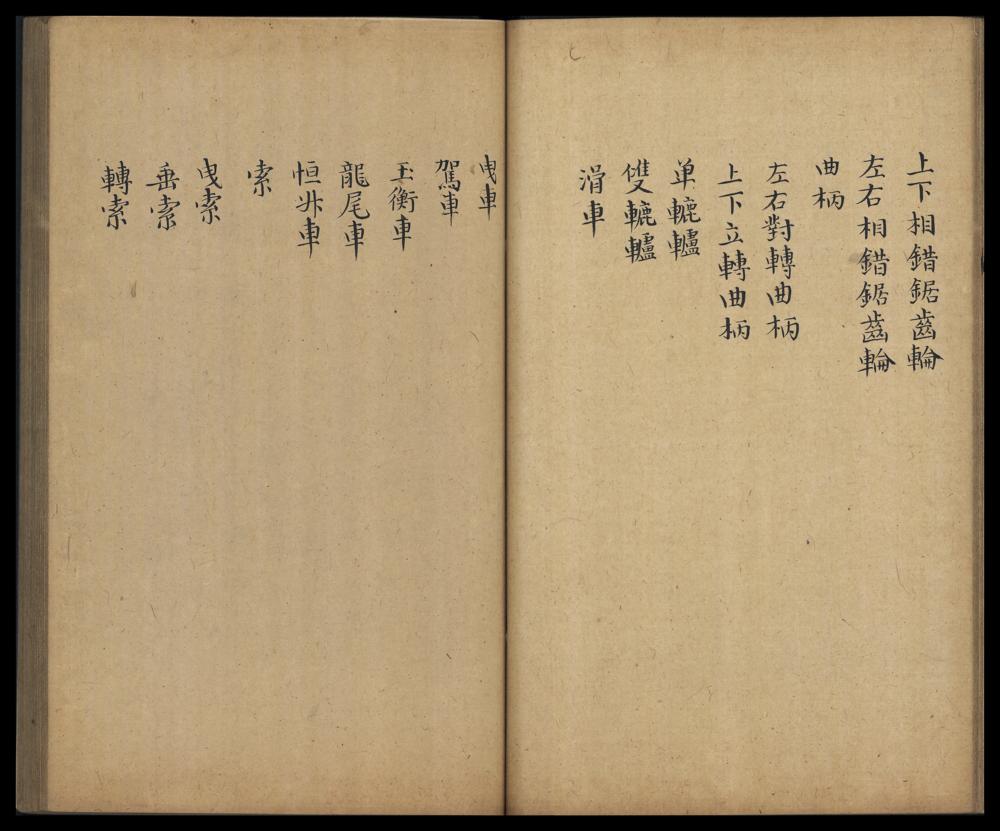 上下相錯鋸齒輪
左右相錯鋸齒輪
曲柄
左右對轉曲柄
上下立轉曲柄
单轆轤
雙轆轤
滑車
曳車
駕車
玉衡車
龍尾車
恒升車
索
曳索
垂索
轉索